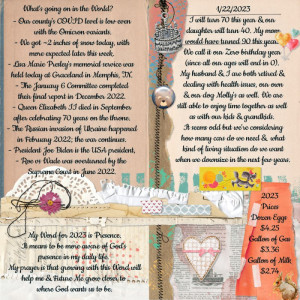 What's going on in the World?
- Our county's COVID level is low even
with the Omicron variants.
- We got ~2 inches of snow today, with
more expected later this week.
- Lisa Marie Presley's memorial service was
held today at Graceland in Memphis, TN.
- The January 6 Committee completed
their final report in December 2022.
- Queen Elizabeth II died in September
after celebrating 70 years on the throne.
- The Russian invasion of Ukraine happened
in February 2022; the war continues.
- President Joe Biden is the USA president.
- Roe vs Wade was overturned by the
Supreme Court in June 2022.
My Word for 2023 is Presence.
It means to be more aware of God's
presence in my daily life.
My prayer is that growing with this Word will
help me & Future Me grow closer to
where God wants us to be.
1/22/2023
I will turn 70 this year & our
daughter will turn 40. My mom
would have turned 90 this year.
We call it our Zero birthday year
(since all our ages will end in 0).
My husband & I are both retired &
dealing with health issues, our mom
& our dog Molly's as well. We are
still able to enjoy time together as well
as with our kids & grandkids.
It seems odd that we're considering
how many cars do we need &, what
kind of living situation do we want
when we downsize in the next few years.
2023
Prices
Dozen Eggs
$4.25
Gallon of Gas
$3.36
Gallon of Milk
$2.74